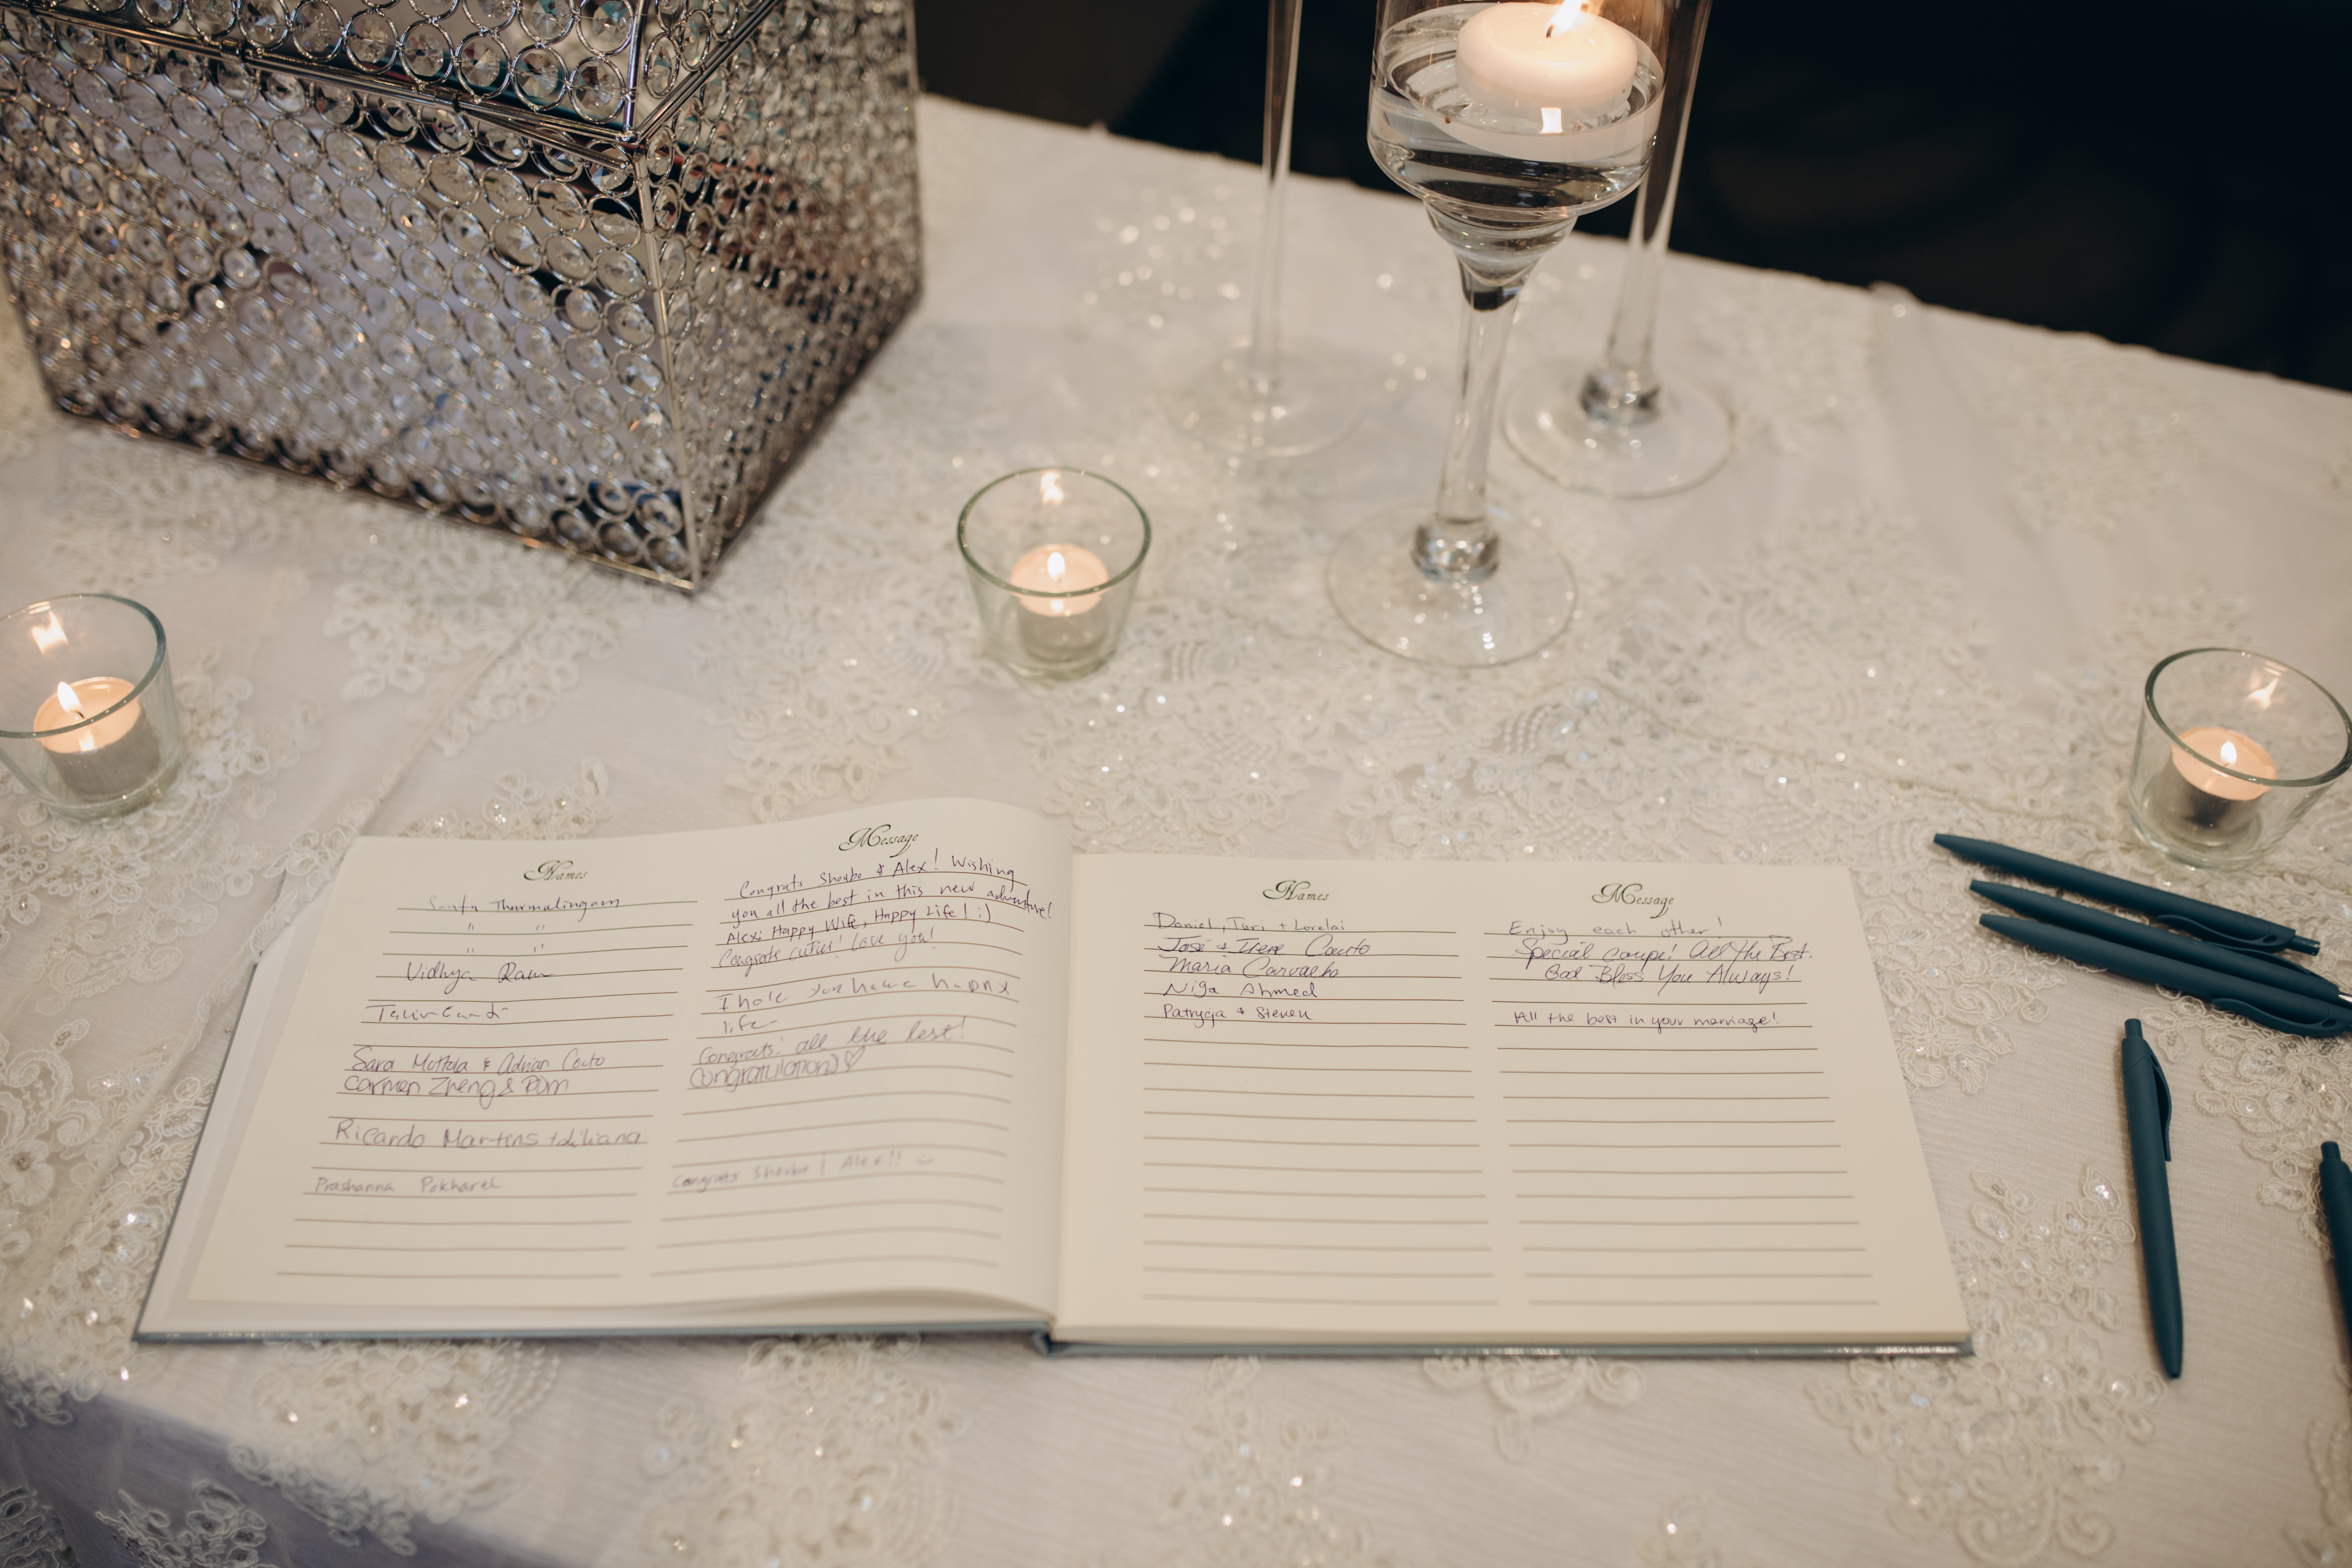 Names
Thurmalingam
" "
" "
Vidhya Ram
Sara Mottola & Adrian Couto
Carmen Zheng & Dom
Ricardo Martins + Liliana
Prashanna Pokharel
Message
Congrats Shoubo & Alex! Wishing
you all the best in this new adventure!
Alex: Happy Wife, Happy Life! :)
Congrats cuties! Love you!
I hole you have happy
life
Congrats! all the best!
Congratulations ♡
Congrats Shoubo & Alex!!
Names
Daniel, Tori + Lorelai
José & Irene Couto
Maria Carvalho
Niga Ahmed
Patrycja + Steven
Message
Enjoy each other!
Special coupe! All The Best.
God Bless You Always!
All the best in your marriage!